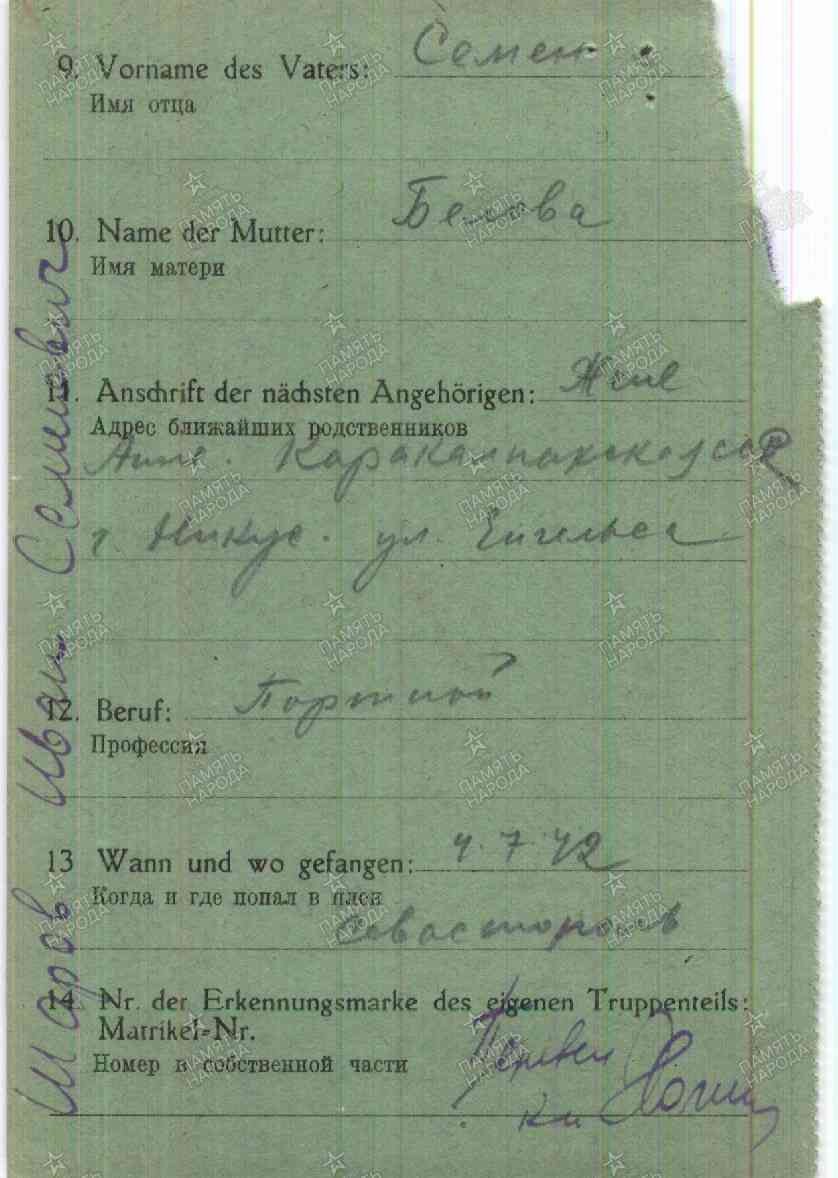 9. Vorname des Vaters: Семен
Имя отца
10. Name der Mutter: Белова
Имя матери
11. Anschrift der nächsten Angehörigen:
Адрес ближайших родственников
г Никус. ул. Енгельса
12. Beruf: Портной
Профессия
13 Wann und wo gefangen: 4.7.42
Когда и где попал в плен
Севастополь
14. Nr. der Erkennungsmarke des eigenen Truppenteils:
Matrikel-Nr.
Номер в собственной части
Шаров Иван Семенович
ПАМЯТЬ НАРОДА